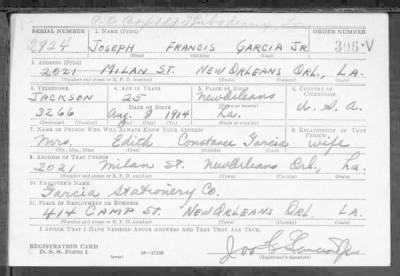 SERIAL NUMBER 1. NAME (Print) ORDER NUMBER
2924 JOSEPH FRANCIS GARCIA JR. 306-V
(First) (Middle) (Last)
2. ADDRESS (Print)
2021 MILAN ST. NEW ORLEANS ORL., LA.
(Number and street or R. F. D. number) (Town) (County) (State)
3. TELEPHONE 4. AGE IN YEARS 5. PLACE OF BIRTH 6. COUNTRY OF CITIZENSHIP
JACKSON 25 New Orleans
DATE OF BIRTH (Town or county) U.S.A.
3266 Aug. 8 1914 La.
(Exchange) (Number) (Mo.) (Day) (Yr.) (State or country)
7. NAME OF PERSON WHO WILL ALWAYS KNOW YOUR ADDRESS 8. RELATIONSHIP OF THAT PERSON
Mrs. Edith Constance Garcia wife
(Mr., Mrs., Miss) (First) (Middle) (Last)
9. ADDRESS OF THAT PERSON
2021 Milan St. New Orleans Orl., La.
(Number and street or R. F. D. number) (Town) (County) (State)
10. EMPLOYER'S NAME
Garcia Stationery Co.
11. PLACE OF EMPLOYMENT OR BUSINESS
414 CAMP ST. NEW ORLEANS ORL. LA.
(Number and street or R. F. D. number) (Town) (County) (State)
I AFFIRM THAT I HAVE VERIFIED ABOVE ANSWERS AND THAT THEY ARE TRUE.
REGISTRATION CARD
D. S. S. FORM 1
(Registrant's signature)